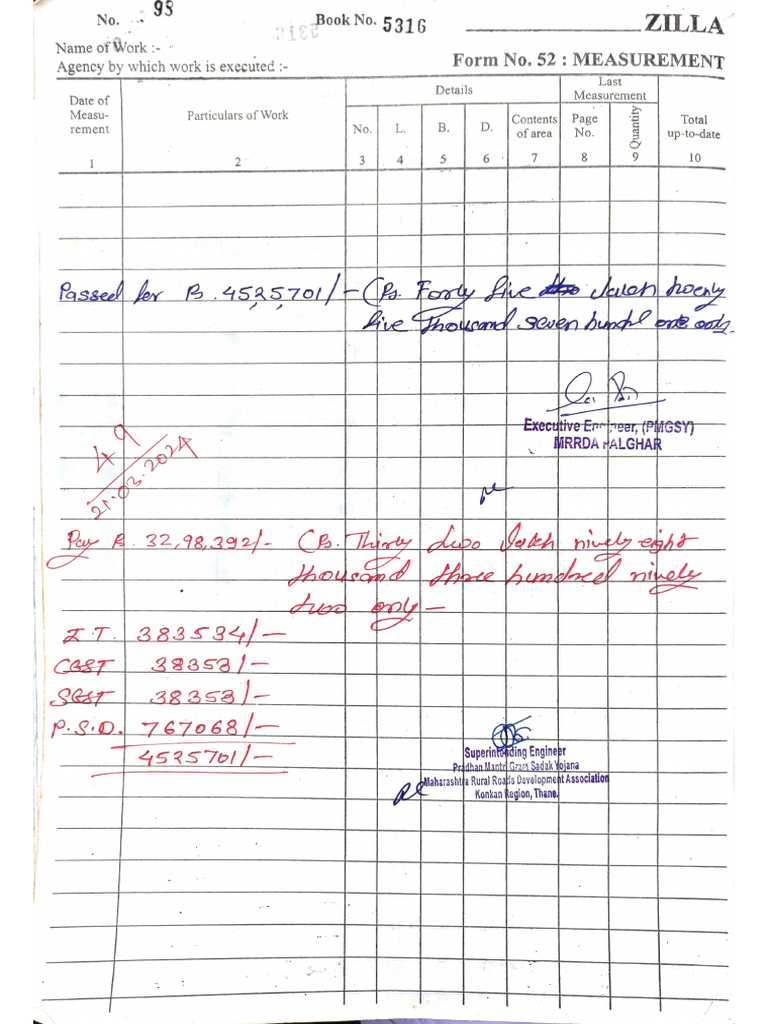 No. 98 Book No. 5316 ZILLA
Name of Work :-
Agency by which work is executed :- Form No. 52 : MEASUREMENT
Date of Measu-rement Particulars of Work Details Last Measurement Total up-to-date
No. L. B. D. Contents of area Page No. Quantity
1 2 3 4 5 6 7 8 9 10
Passed for Rs. 4525701/- (Rs. Forty five lakh twenty
five thousand seven hundred one only
Executive Engineer, (PMGSY)
MRRDA PALGHAR
49
21.03.2024
Pay Rs. 32,98,392/- (Rs. Thirty two lakh ninety eight
thousand three hundred ninety
two only -
I.T. 383534/-
CGST 38353/-
SGST 38353/-
P.S.D. 767068/-
4525701/-
Superintending Engineer
Pradhan Mantri Gram Sadak Yojana
Maharashtra Rural Roads Development Association
Konkan Region, Thane.